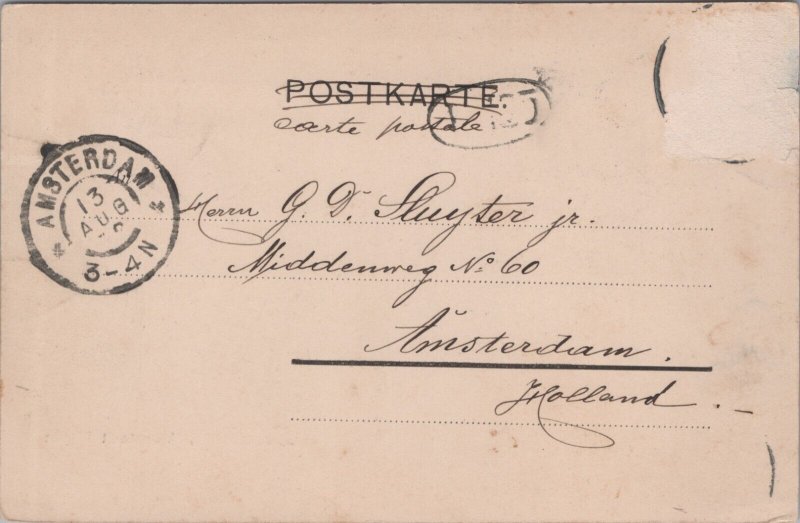 POSTKARTE.
carte postale
AMSTERDAM
13
AUG
3-4N
Herrn G. D. Sluyter jr.
Middenweg No. 60
Amsterdam.
Holland.